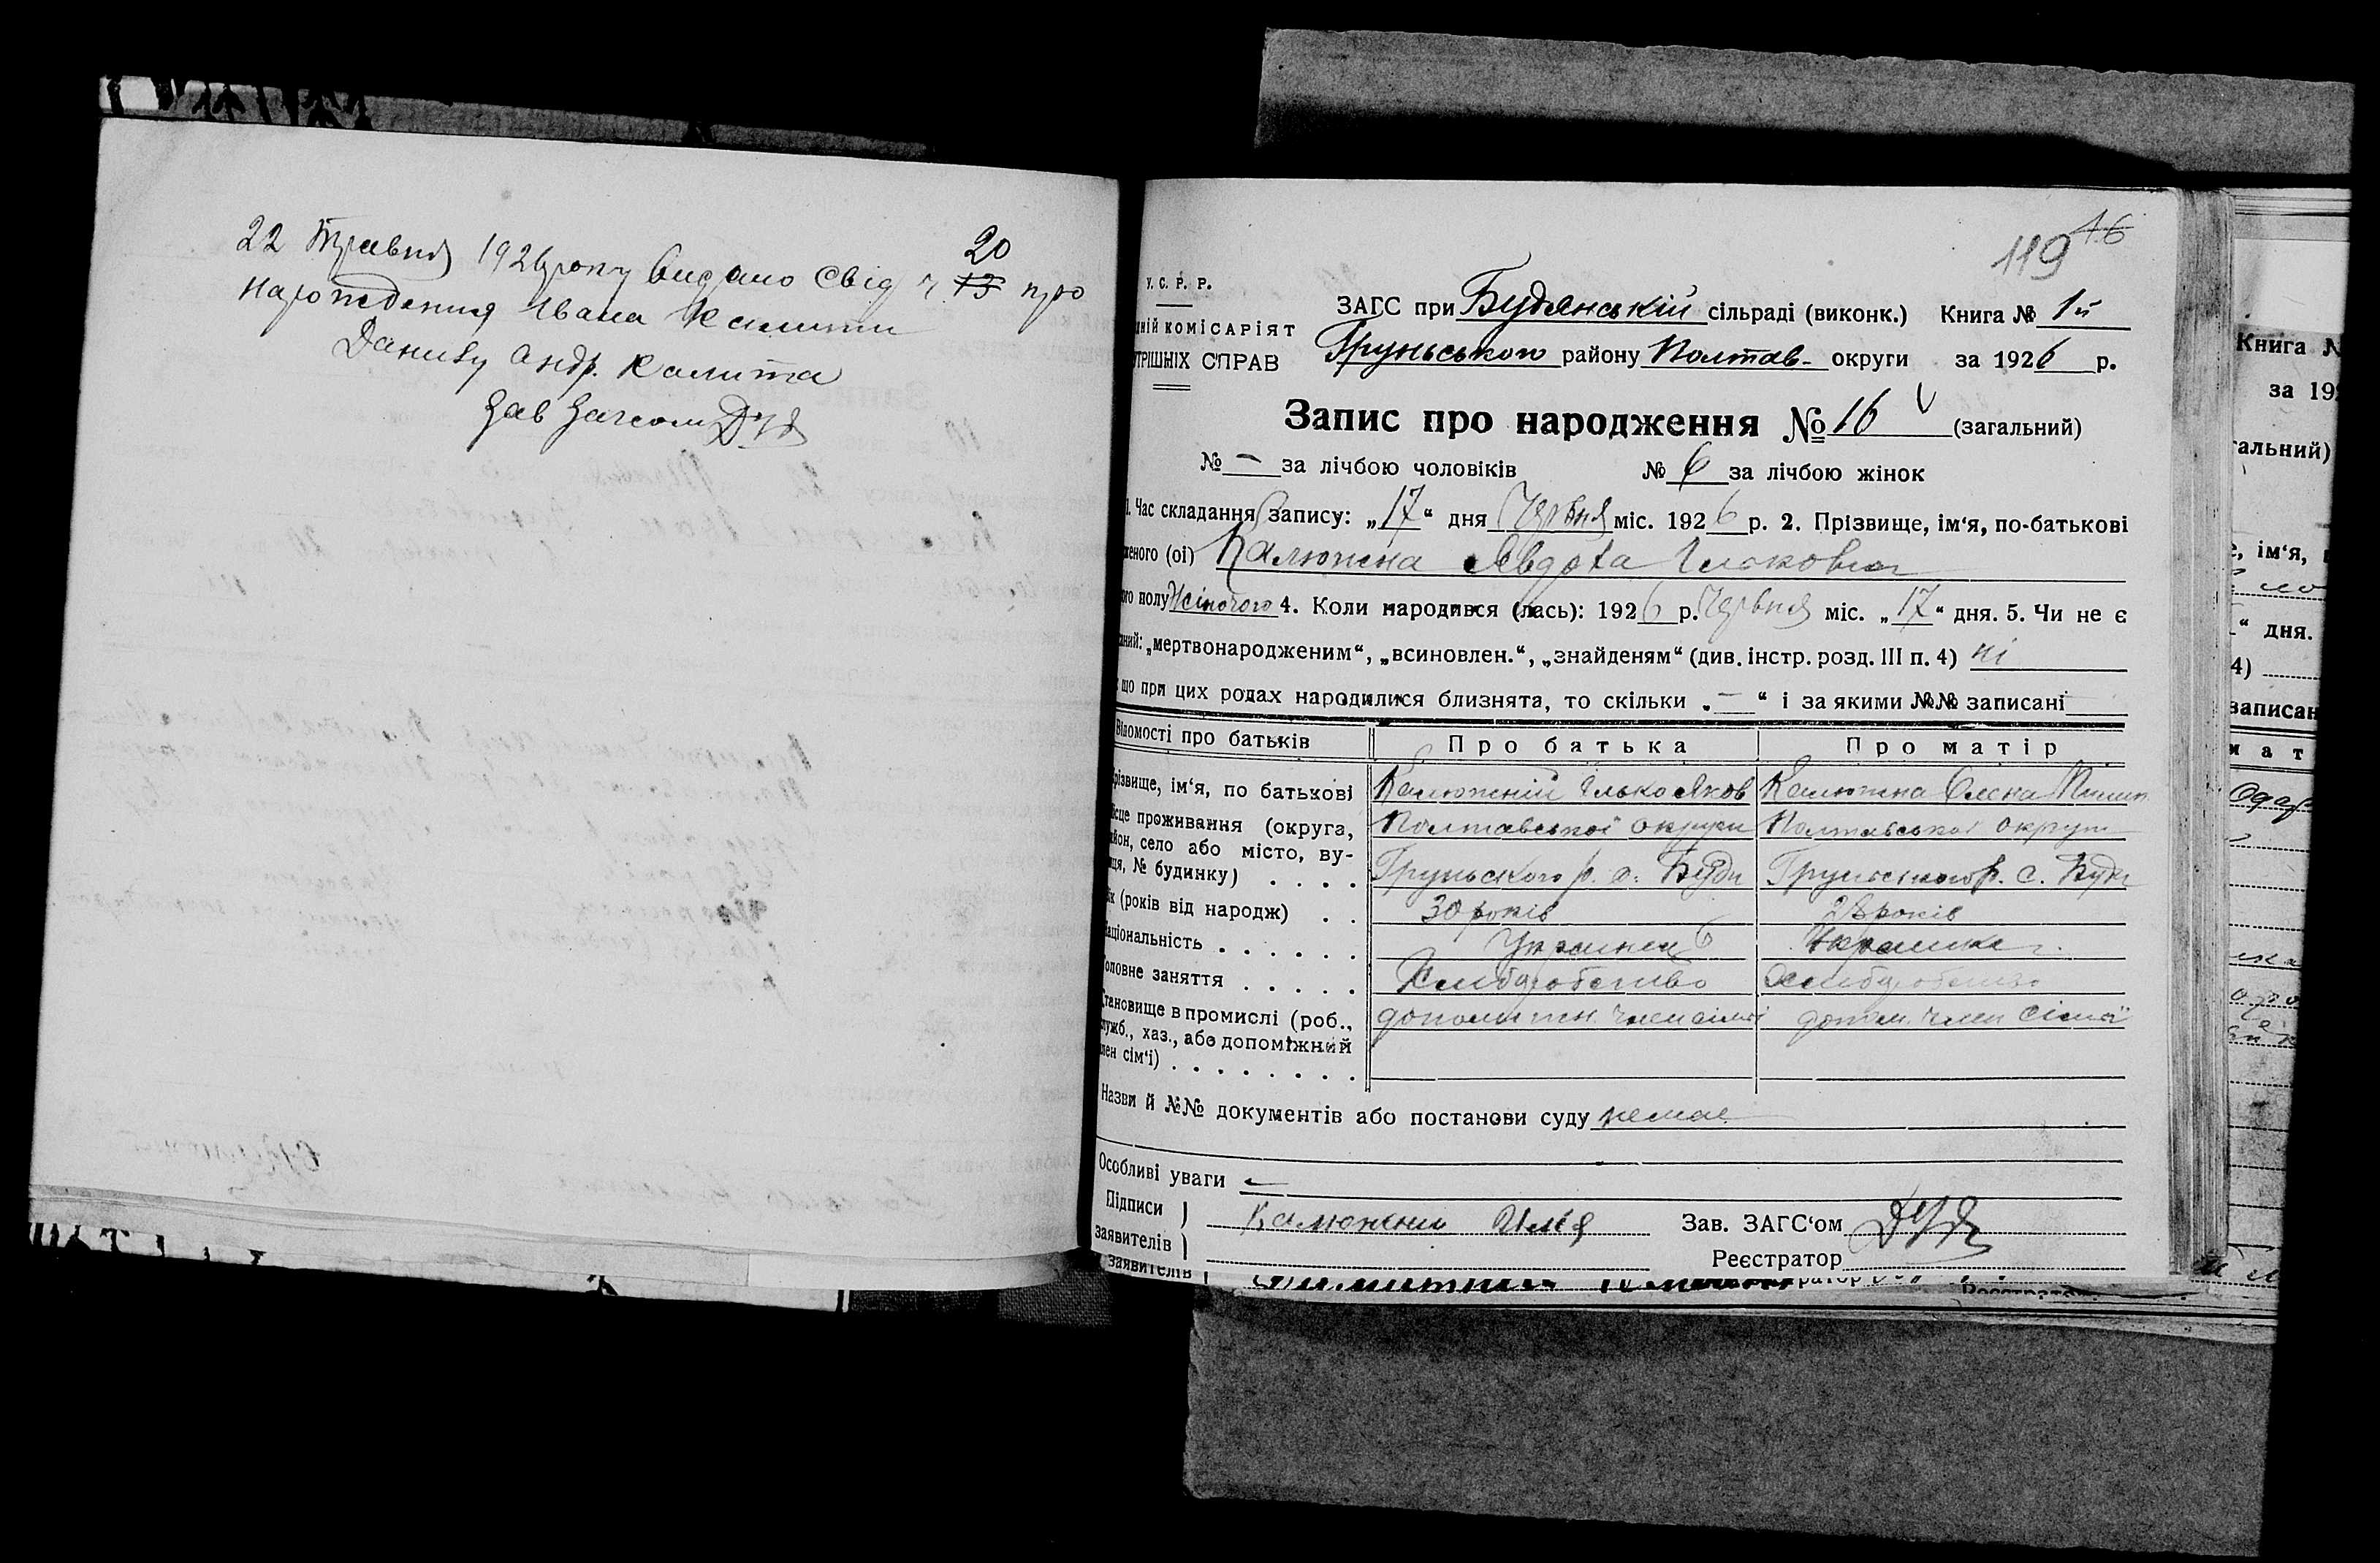 22 Травня 1926 року видано свід ч 13 20 про
народження Івана Калити
Данилу Андр. Калита
Зав Загсом
119 16
У. С. Р. Р.
ЗАГС при Будянській сільраді (виконк.) Книга № 1й
дній комісаріят
трішніх справ
Груньського району Полтав- округи за 1926 р.
Запис про народження № 16 (загальний)
№ — за лічбою чоловіків № 6 за лічбою жінок
1. Час складання запису: „17“ дня Червня міс. 1926 р. 2. Прізвище, ім‘я, по-батькові
женого (ої) Калюжна Явдоха Ільковна
ого полу Жіночого 4. Коли народився (лась): 1926 р. Червня міс. „17“ дня. 5. Чи не є
аний: „мертвонародженим“, „всиновлен.“, „знайденям“ (див. інстр. розд. III п. 4) ні
що при цих родах народилися близнята, то скільки „—“ і за якими №№ записані
Відомості про батьків Про батька Про матір
різвище, ім‘я, по батькові Калюжний Ілько Яков Калюжна Олена Пилип
ісце проживання (округа, Полтавської округи Полтавської округи
йон, село або місто, ву-
иця, № будинку) . . . . Груньского р. с. Буди Груньського р. с. Буди
ік (років від народж) . . 30 років 28 років
аціональність . . . . . . Українец Українка
оловне заняття . . . . . Хлиборобство Хлиборобство
тановище в промислі (роб., допомижн. член сімї допом. член сімї
лужб., хаз., або допоміжний
лен сім‘ї) . . . . . . . .
Назви й №№ документів або постанови суду немає
Особливі уваги —
Підписи
заявителів
Калюжний Илья Зав. ЗАГС‘ом
Реєстратор
заявителів
Книга №
за 19
гальний)
е, ім‘я,
“ дня.
4)
записан
м а т
Одар